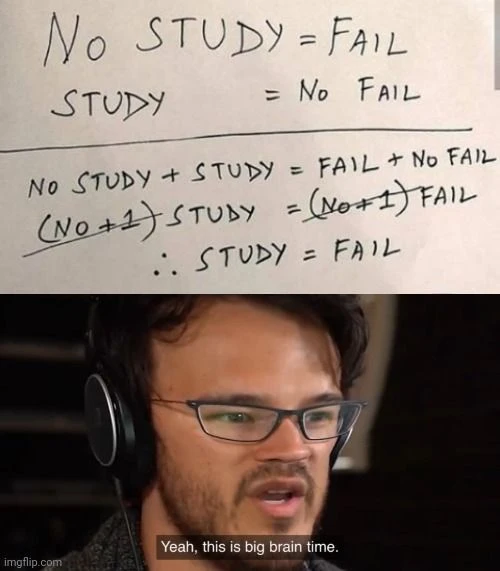 No STUDY = FAIL
STUDY = No FAIL
NO STUDY + STUDY = FAIL + NO FAIL
(NO+1) STUDY = (NO+1) FAIL
∴ STUDY = FAIL
Yeah, this is big brain time.
imgflip.com